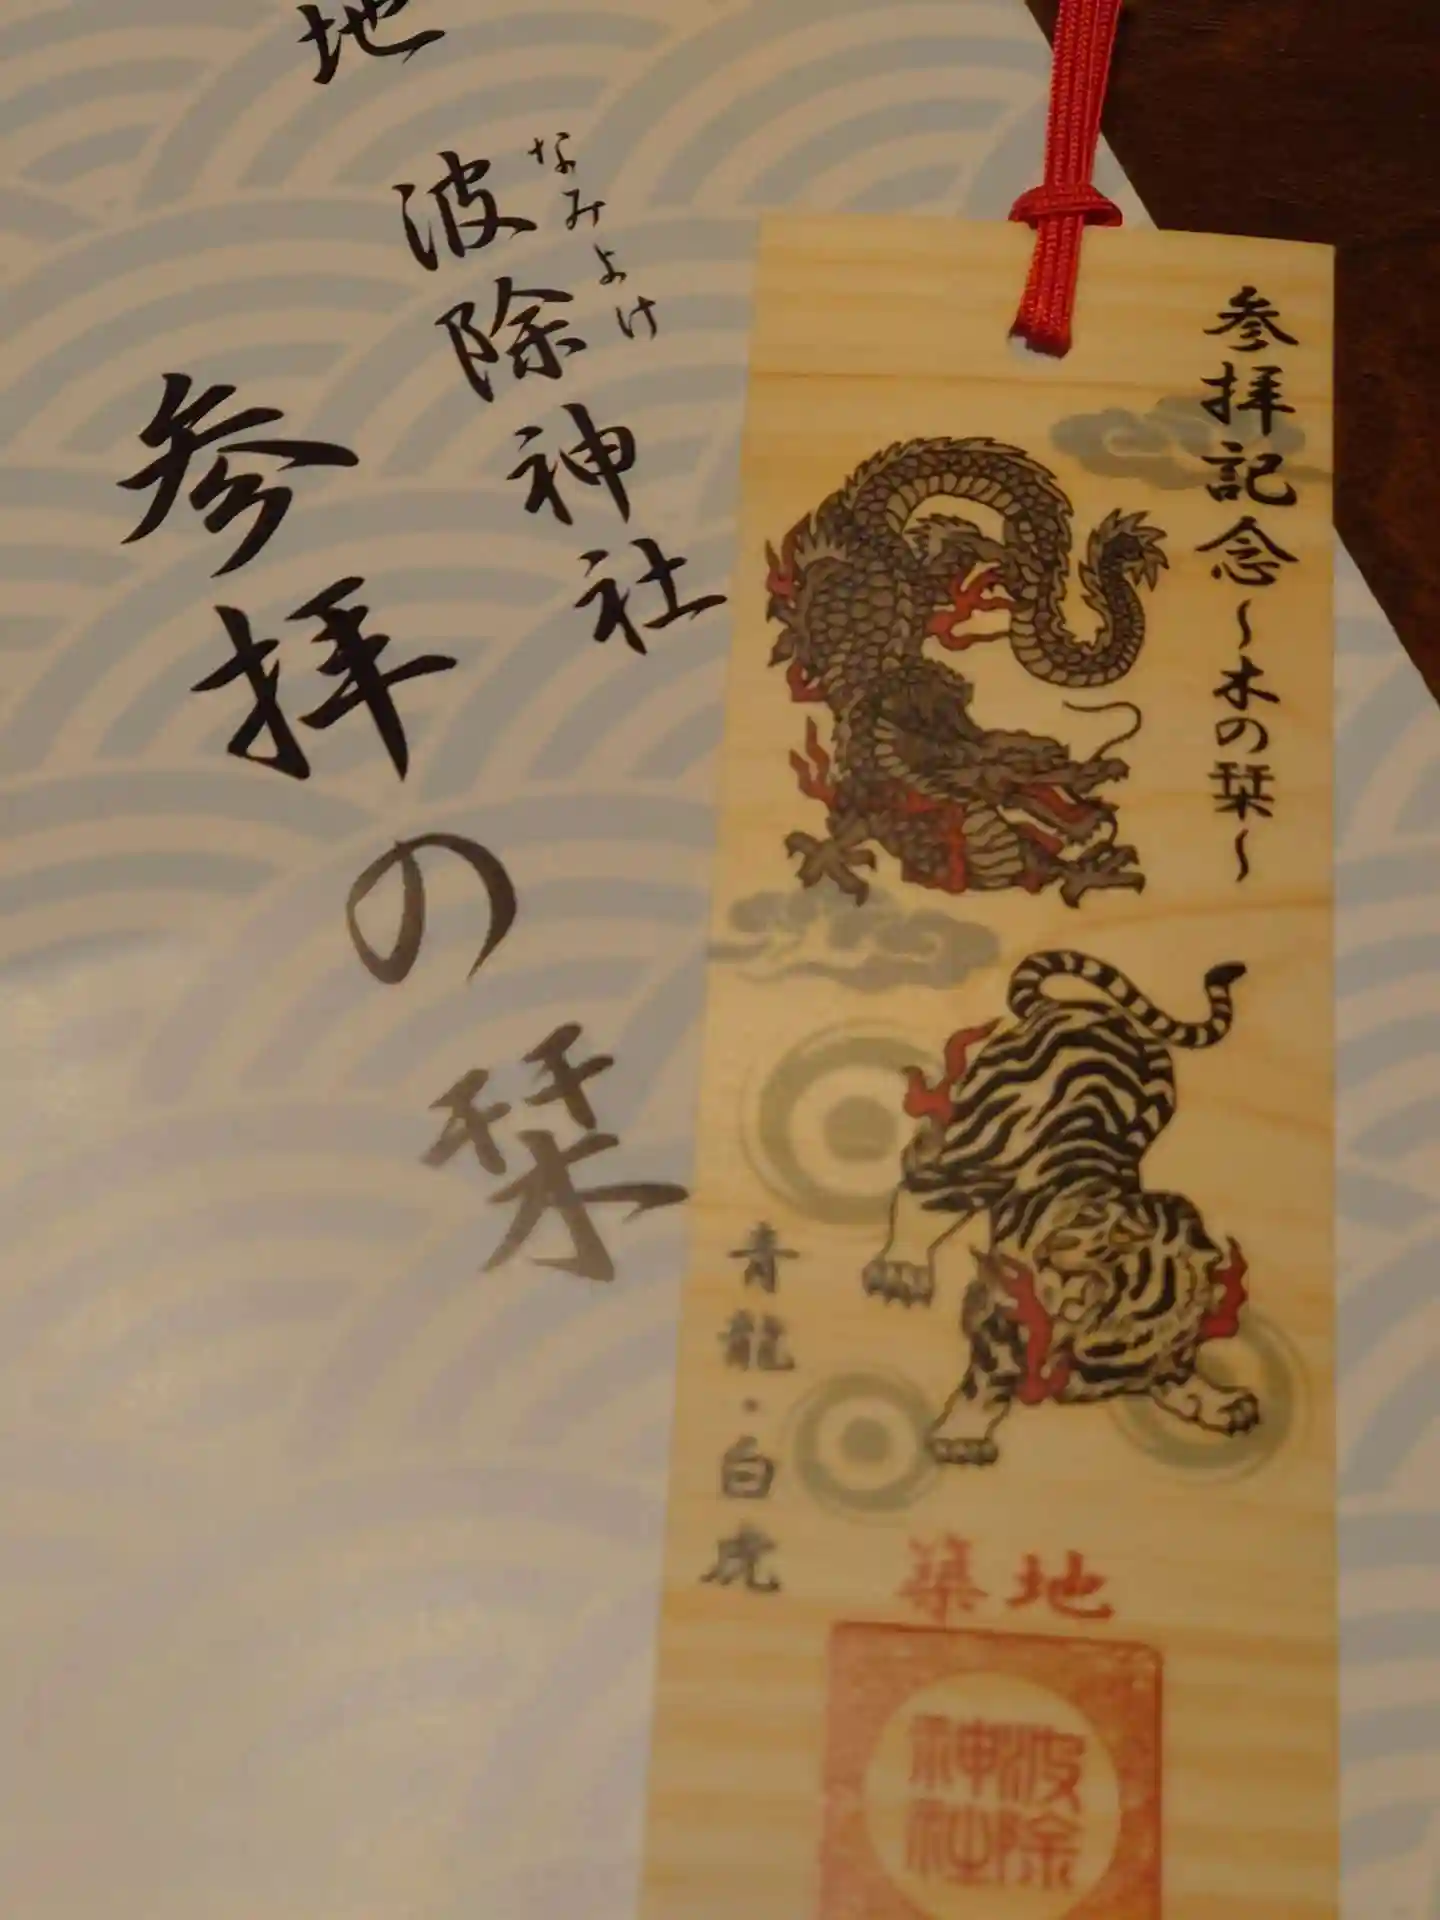 地
波除神社
なみよけ
参拝の栞
参拝記念～木の栞～
青龍・白虎
築地
波除
神社